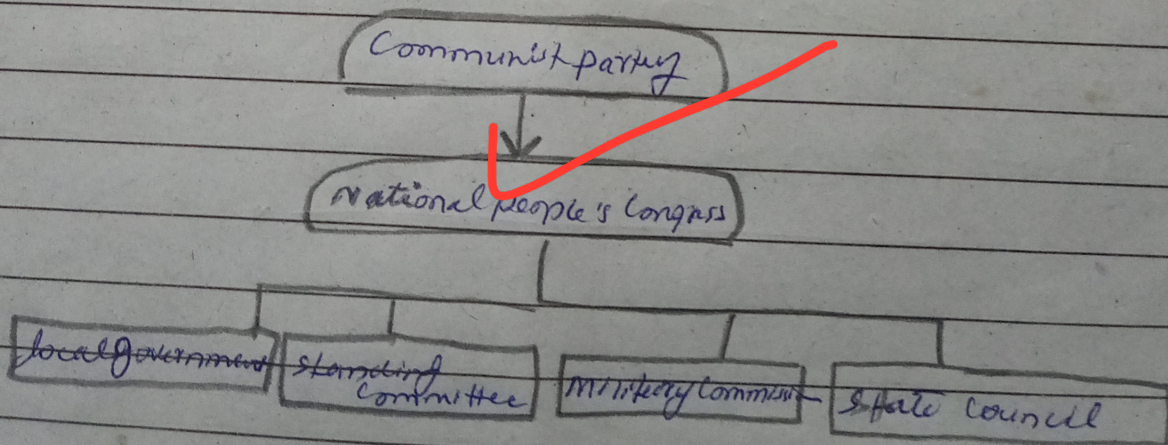 Communist party
National people's Congress
local government
Standing
Committee
Military Commission
State Council